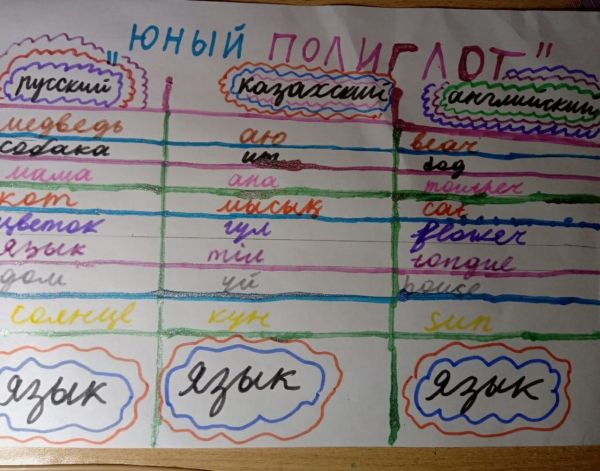 "ЮНЫЙ ПОЛИГЛОТ"
русский казахский английский
медведь аю bear
собака ит dog
мама ана
кот мысық cat
цветок гүл flower
язык тіл tongue
дом үй house
солнце күн sun
язык язык язык